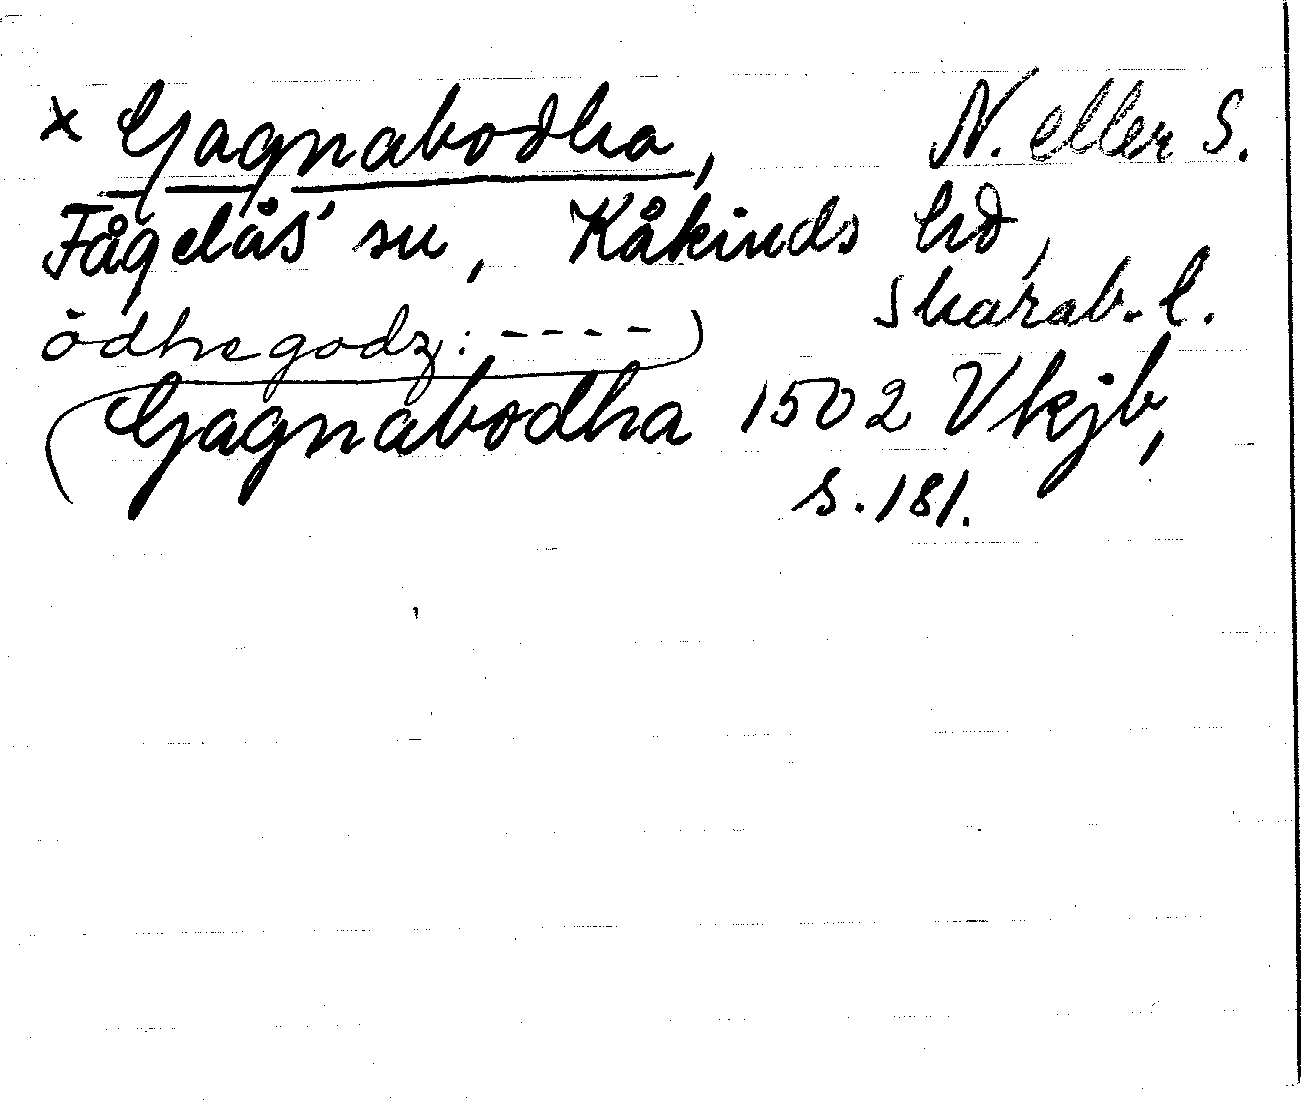 × Gagnabodha, N. eller S.
Fågelås' sn, Kåkinds hd,
Skarab. l.
ödhe godz: - - - - )
( Gagnabodha 1502 Vkjb,
s. 181.